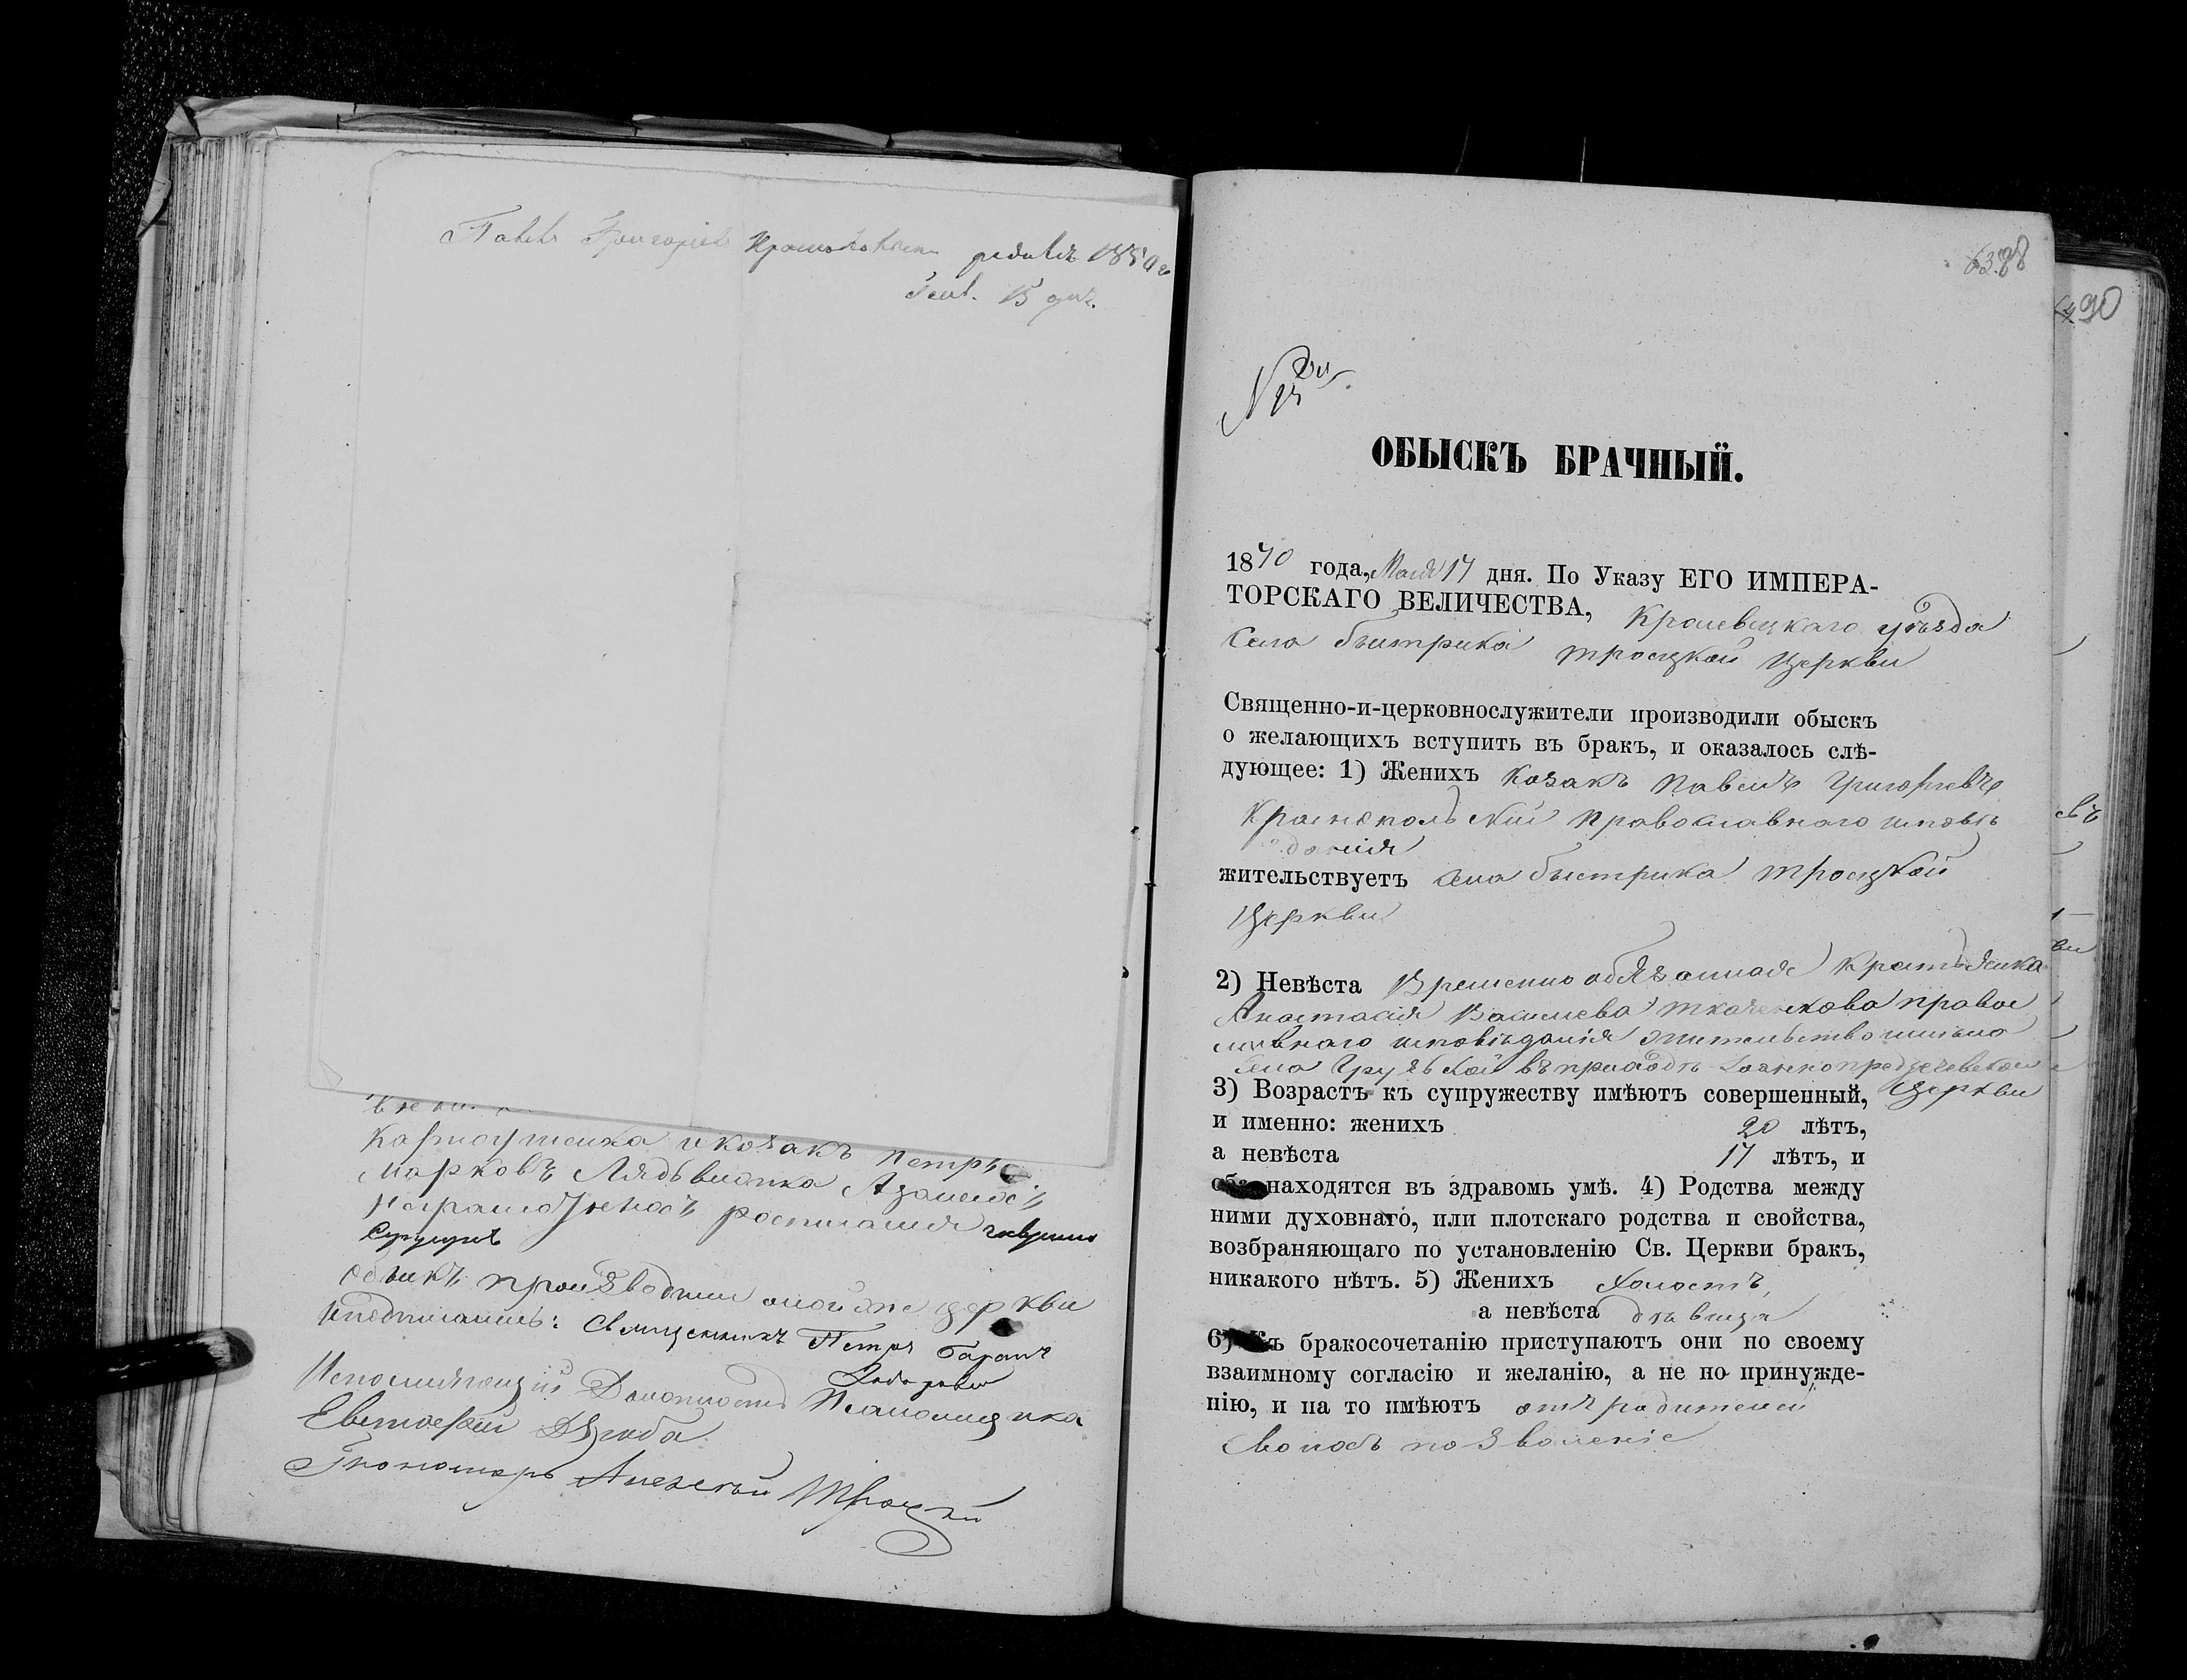 Павелъ Григоріевъ родився 1850 г
Сент. 15 дня.
козакъ Петръ
Марковъ
росписался
Обыскъ производили оной же церкви
подписались: Священникъ Петръ
Исполняющій Должность Псаломщика
Евстафій Дзюба
Пономарь Алексѣй Троцкій
63. 88
90
ОБЫСКЪ БРАЧНЫЙ.
1870 года, Мая 17 дня. По Указу ЕГО ИМПЕРА-
ТОРСКАГО ВЕЛИЧЕСТВА, Кролевецкаго уѣзда
Села Быстрика Троецкой Церкви
Священно-и-церковнослужители производили обыскъ
о желающихъ вступить въ бракъ, и оказалось слѣ-
дующее: 1) Женихъ Козакъ Павелъ Григоріевъ
Краснопольскій Православнаго исповѣ
данія
жительствуетъ села Быстрика Троецкой
Церкви
2) Невѣста Временно обязанная Крестьянка
Анастасія Васильева Ткаченкова правос
лавнаго исповѣданія жительство
села Грузской въ приходѣ Іоаннопредтечевской
Церкви
3) Возрастъ къ супружеству имѣютъ совершенный,
и именно: женихъ 20 лѣтъ,
а невѣста 17 лѣтъ, и
оба находятся въ здравомъ умѣ. 4) Родства между
ними духовнаго, или плотскаго родства и свойства,
возбраняющаго по установленію Св. Церкви бракъ,
никакого нѣтъ. 5) Женихъ Холостъ,
а невѣста дѣвица
6) Къ бракосочетанію приступаютъ они по своему
взаимному согласію и желанію, а не по принужде-
нію, и на то имѣютъ отъ родителей
своихъ позволеніе